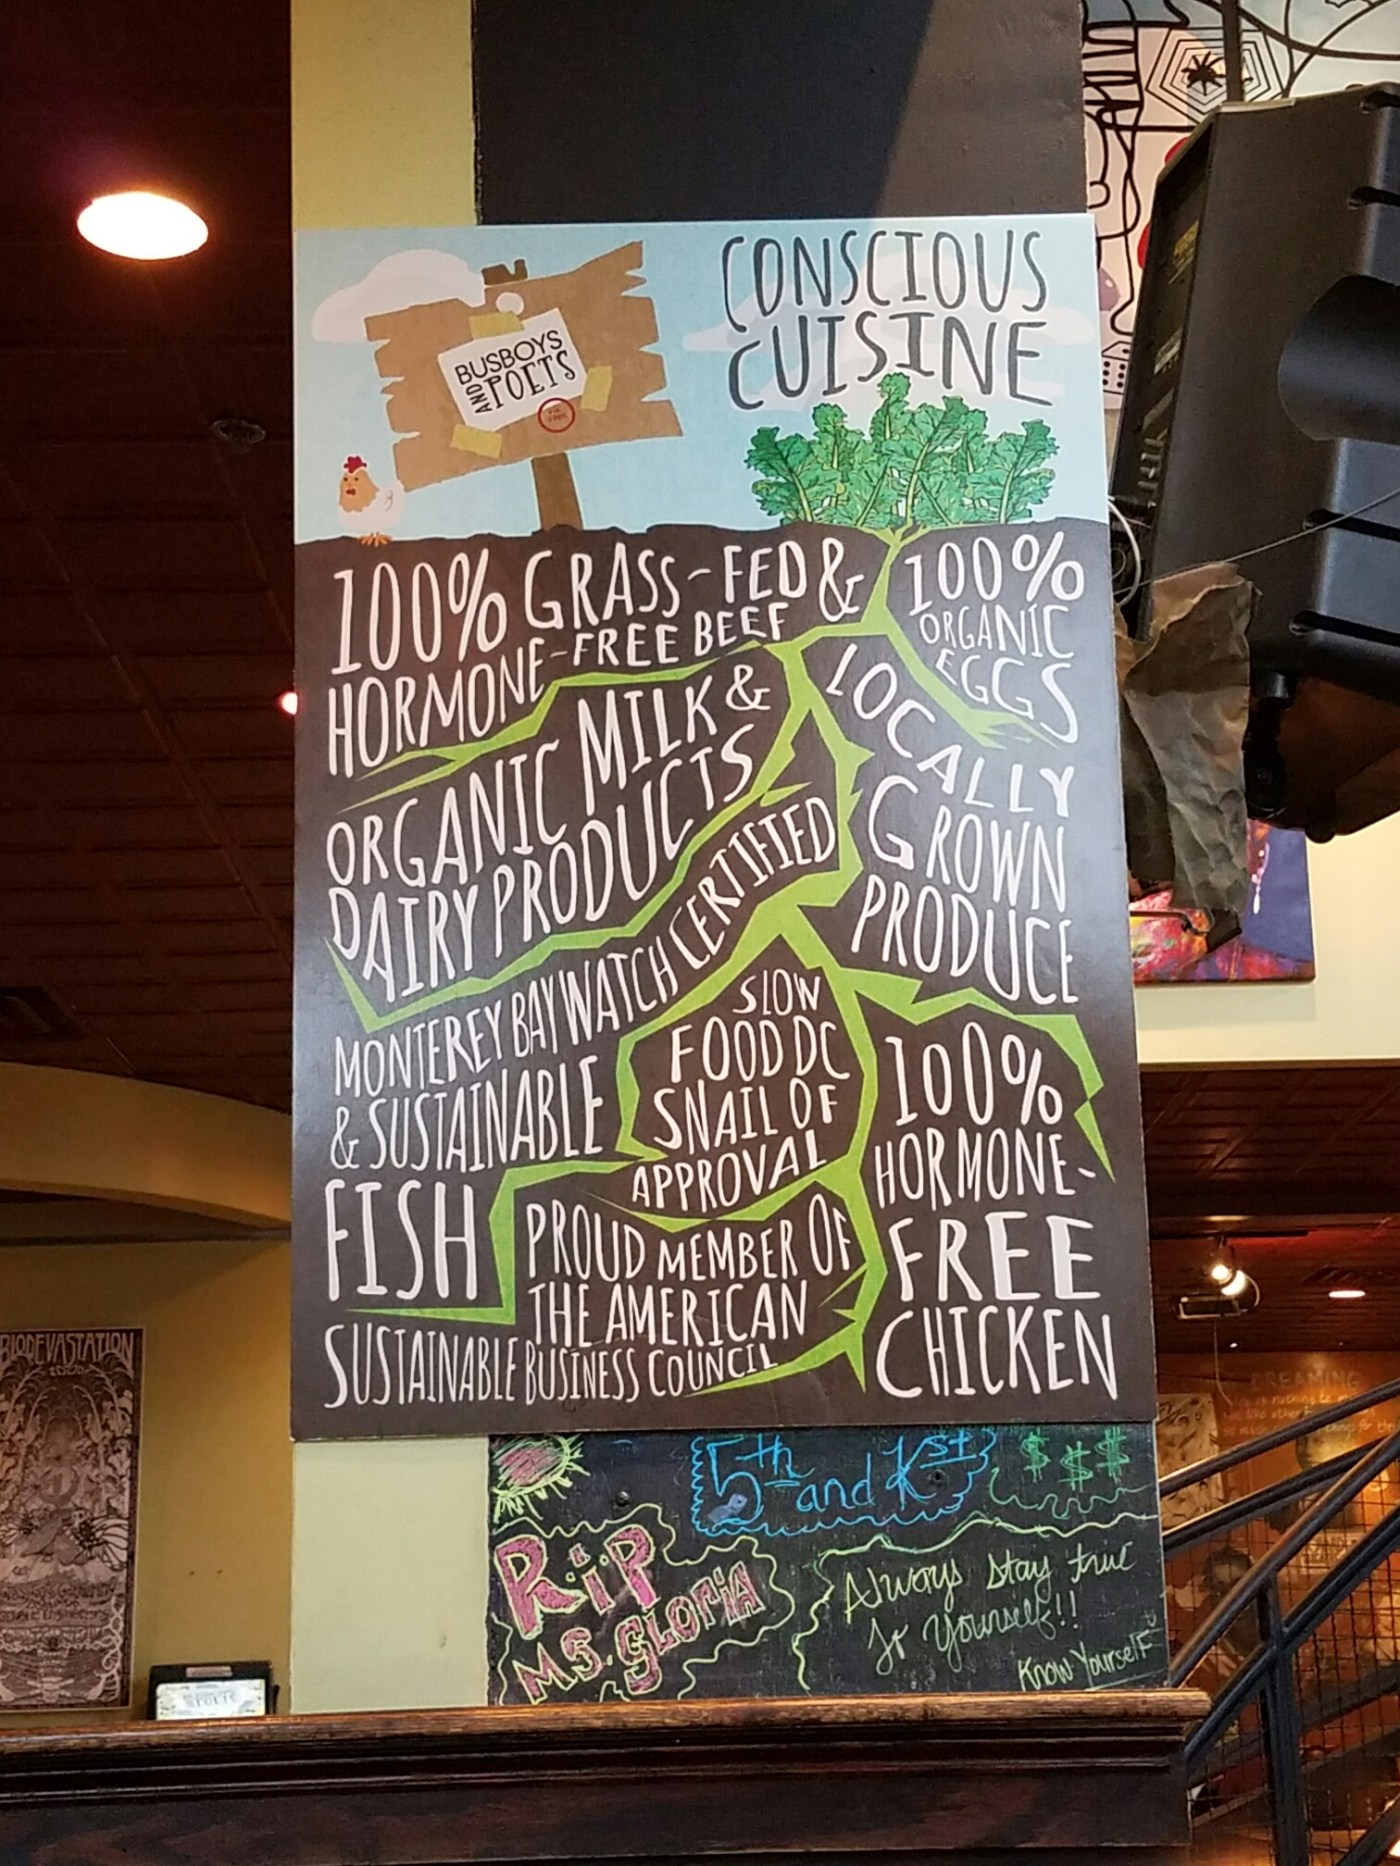 CONSCIOUS
CUISINE
BUSBOYS
AND POETS
100% GRASS-FED &
HORMONE-FREE BEEF
100%
ORGANIC
EGGS
ORGANIC MILK &
DAIRY PRODUCTS
LOCALLY
GROWN
PRODUCE
MONTEREY BAY WATCH CERTIFIED
& SUSTAINABLE
FISH
SLOW
FOOD DC
SNAIL OF
APPROVAL
100%
HORMONE-
FREE
CHICKEN
PROUD MEMBER OF
THE AMERICAN
SUSTAINABLE BUSINESS COUNCIL
5th and K st
$ $ $
R.i.P
MS. GLORIA
Always stay true
to yourself!!
Know Yourself
BIODEVASTATION
DREAMING